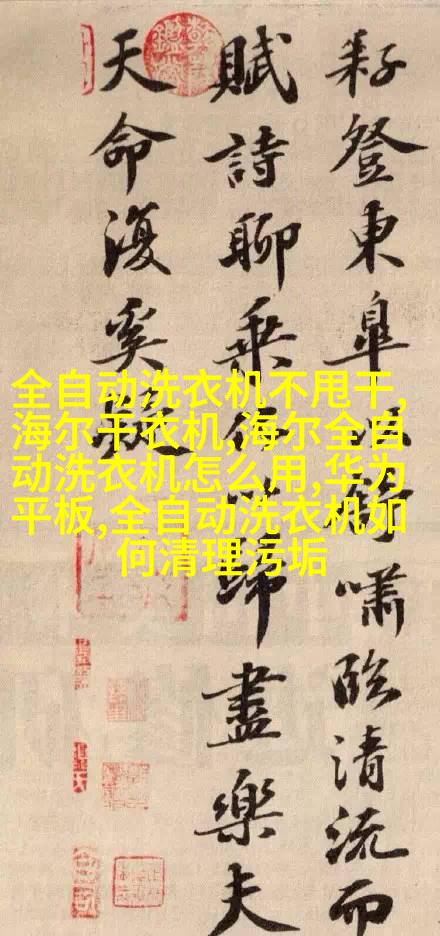 耔登東皐以舒嘯臨清流而
賦詩聊乘化以歸盡樂夫
天命復奚疑
全自动洗衣机不甩干,
海尔干衣机,海尔全自
动洗衣机怎么用,华为
平板,全自动洗衣机如
何清理污垢